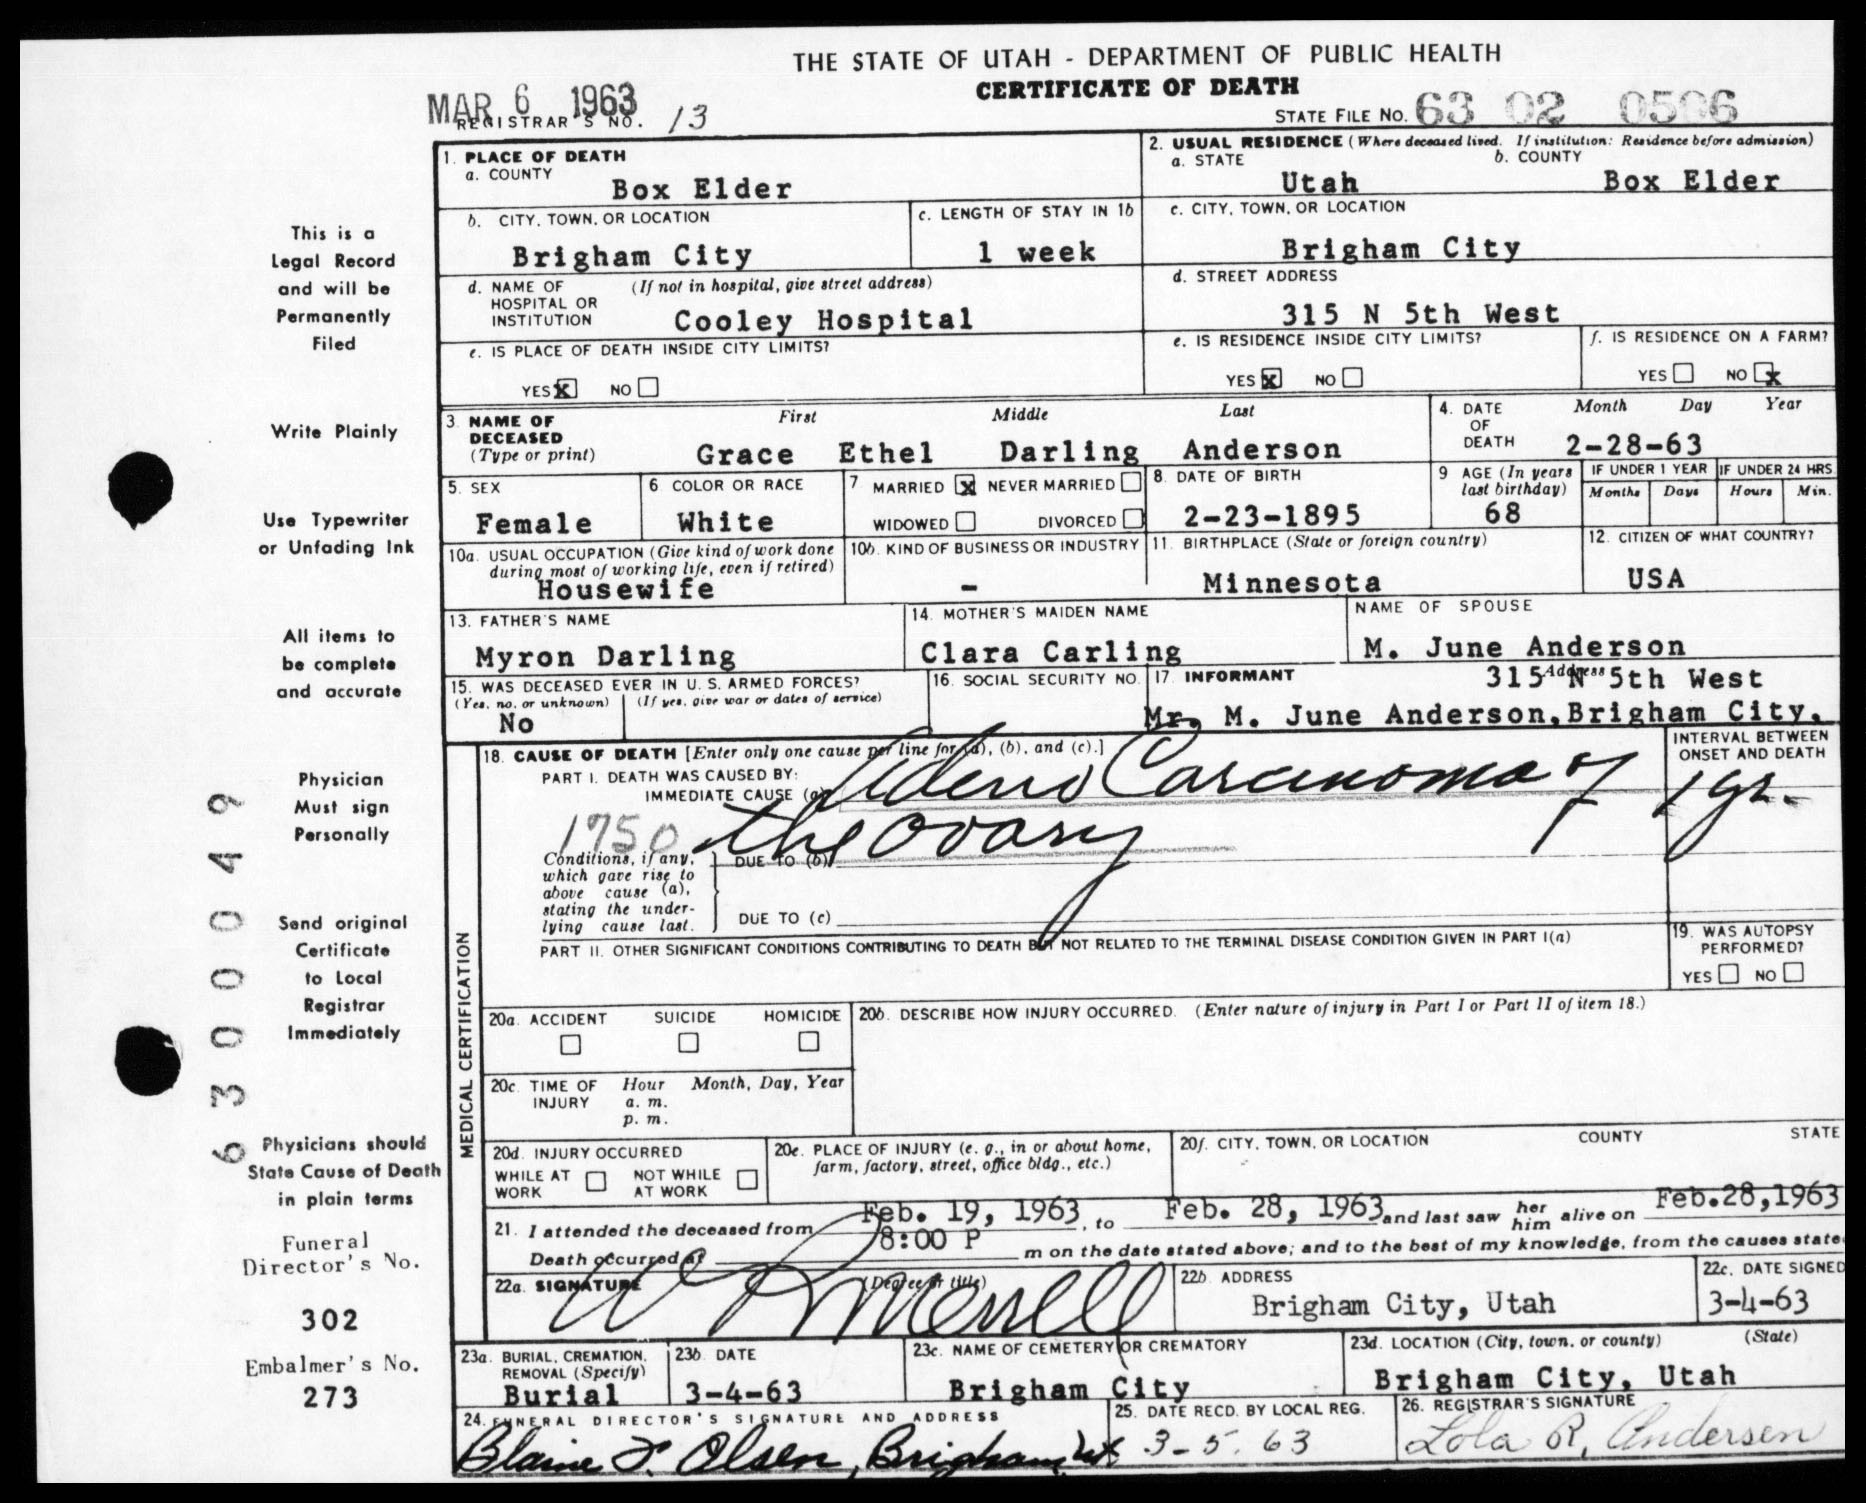 THE STATE OF UTAH - DEPARTMENT OF PUBLIC HEALTH
CERTIFICATE OF DEATH
MAR 6 1963
REGISTRAR'S NO. 13
STATE FILE NO. 63 02 0506
1. PLACE OF DEATH
a. COUNTY
Box Elder
2. USUAL RESIDENCE (Where deceased lived. If institution: Residence before admission)
a. STATE b. COUNTY
Utah Box Elder
b. CITY, TOWN, OR LOCATION
Brigham City
c. LENGTH OF STAY IN 1b
1 week
c. CITY, TOWN, OR LOCATION
Brigham City
d. NAME OF HOSPITAL OR INSTITUTION (If not in hospital, give street address)
Cooley Hospital
d. STREET ADDRESS
315 N 5th West
e. IS PLACE OF DEATH INSIDE CITY LIMITS?
YES x NO
e. IS RESIDENCE INSIDE CITY LIMITS?
YES x NO
f. IS RESIDENCE ON A FARM?
YES NO x
3. NAME OF DECEASED (Type or print)
First Middle Last
Grace Ethel Darling Anderson
4. DATE OF DEATH Month Day Year
2-28-63
5. SEX
Female
6. COLOR OR RACE
White
7 MARRIED x NEVER MARRIED
WIDOWED DIVORCED
8. DATE OF BIRTH
2-23-1895
9 AGE (In years last birthday)
68
IF UNDER 1 YEAR IF UNDER 24 HRS.
Months Days Hours Min.
10a. USUAL OCCUPATION (Give kind of work done during most of working life, even if retired)
Housewife
10b. KIND OF BUSINESS OR INDUSTRY
-
11. BIRTHPLACE (State or foreign country)
Minnesota
12. CITIZEN OF WHAT COUNTRY?
USA
13. FATHER'S NAME
Myron Darling
14. MOTHER'S MAIDEN NAME
Clara Carling
NAME OF SPOUSE
M. June Anderson
15. WAS DECEASED EVER IN U. S. ARMED FORCES?
(Yes, no, or unknown) (If yes, give war or dates of service)
No
16. SOCIAL SECURITY NO.
17. INFORMANT Address
315 N 5th West
Mr. M. June Anderson, Brigham City,
MEDICAL CERTIFICATION
18. CAUSE OF DEATH [Enter only one cause per line for (a), (b), and (c).]
PART I. DEATH WAS CAUSED BY:
IMMEDIATE CAUSE (a) Adeno Carcinoma of
1750 the ovary
INTERVAL BETWEEN ONSET AND DEATH
1 yr.
Conditions, if any, which gave rise to above cause (a), stating the underlying cause last.
DUE TO (b)
DUE TO (c)
PART II. OTHER SIGNIFICANT CONDITIONS CONTRIBUTING TO DEATH BUT NOT RELATED TO THE TERMINAL DISEASE CONDITION GIVEN IN PART I(a)
19. WAS AUTOPSY PERFORMED?
YES NO
20a. ACCIDENT SUICIDE HOMICIDE
20b. DESCRIBE HOW INJURY OCCURRED. (Enter nature of injury in Part I or Part II of item 18.)
20c. TIME OF INJURY Hour Month, Day, Year
a. m.
p. m.
20d. INJURY OCCURRED
WHILE AT WORK NOT WHILE AT WORK
20e. PLACE OF INJURY (e. g., in or about home, farm, factory, street, office bldg., etc.)
20f. CITY, TOWN, OR LOCATION COUNTY STATE
21. I attended the deceased from Feb. 19, 1963, to Feb. 28, 1963 and last saw her him alive on Feb.28,1963
Death occurred at 8:00 P m on the date stated above; and to the best of my knowledge, from the causes state
22a. SIGNATURE (Degree or title)
W R Merrell
22b. ADDRESS
Brigham City, Utah
22c. DATE SIGNED
3-4-63
23a. BURIAL, CREMATION, REMOVAL (Specify)
Burial
23b. DATE
3-4-63
23c. NAME OF CEMETERY OR CREMATORY
Brigham City
23d. LOCATION (City, town, or county) (State)
Brigham City, Utah
24. FUNERAL DIRECTOR'S SIGNATURE AND ADDRESS
Blaine F. Olsen, Brigham, Ut
25. DATE RECD. BY LOCAL REG.
3-5-63
26. REGISTRAR'S SIGNATURE
Lola R. Andersen
This is a
Legal Record
and will be
Permanently
Filed
Write Plainly
Use Typewriter
or Unfading Ink
All items to
be complete
and accurate
Physician
Must sign
Personally
Send original
Certificate
to Local
Registrar
Immediately
Physicians should
State Cause of Death
in plain terms
Funeral
Director's No.
302
Embalmer's No.
273
6300049